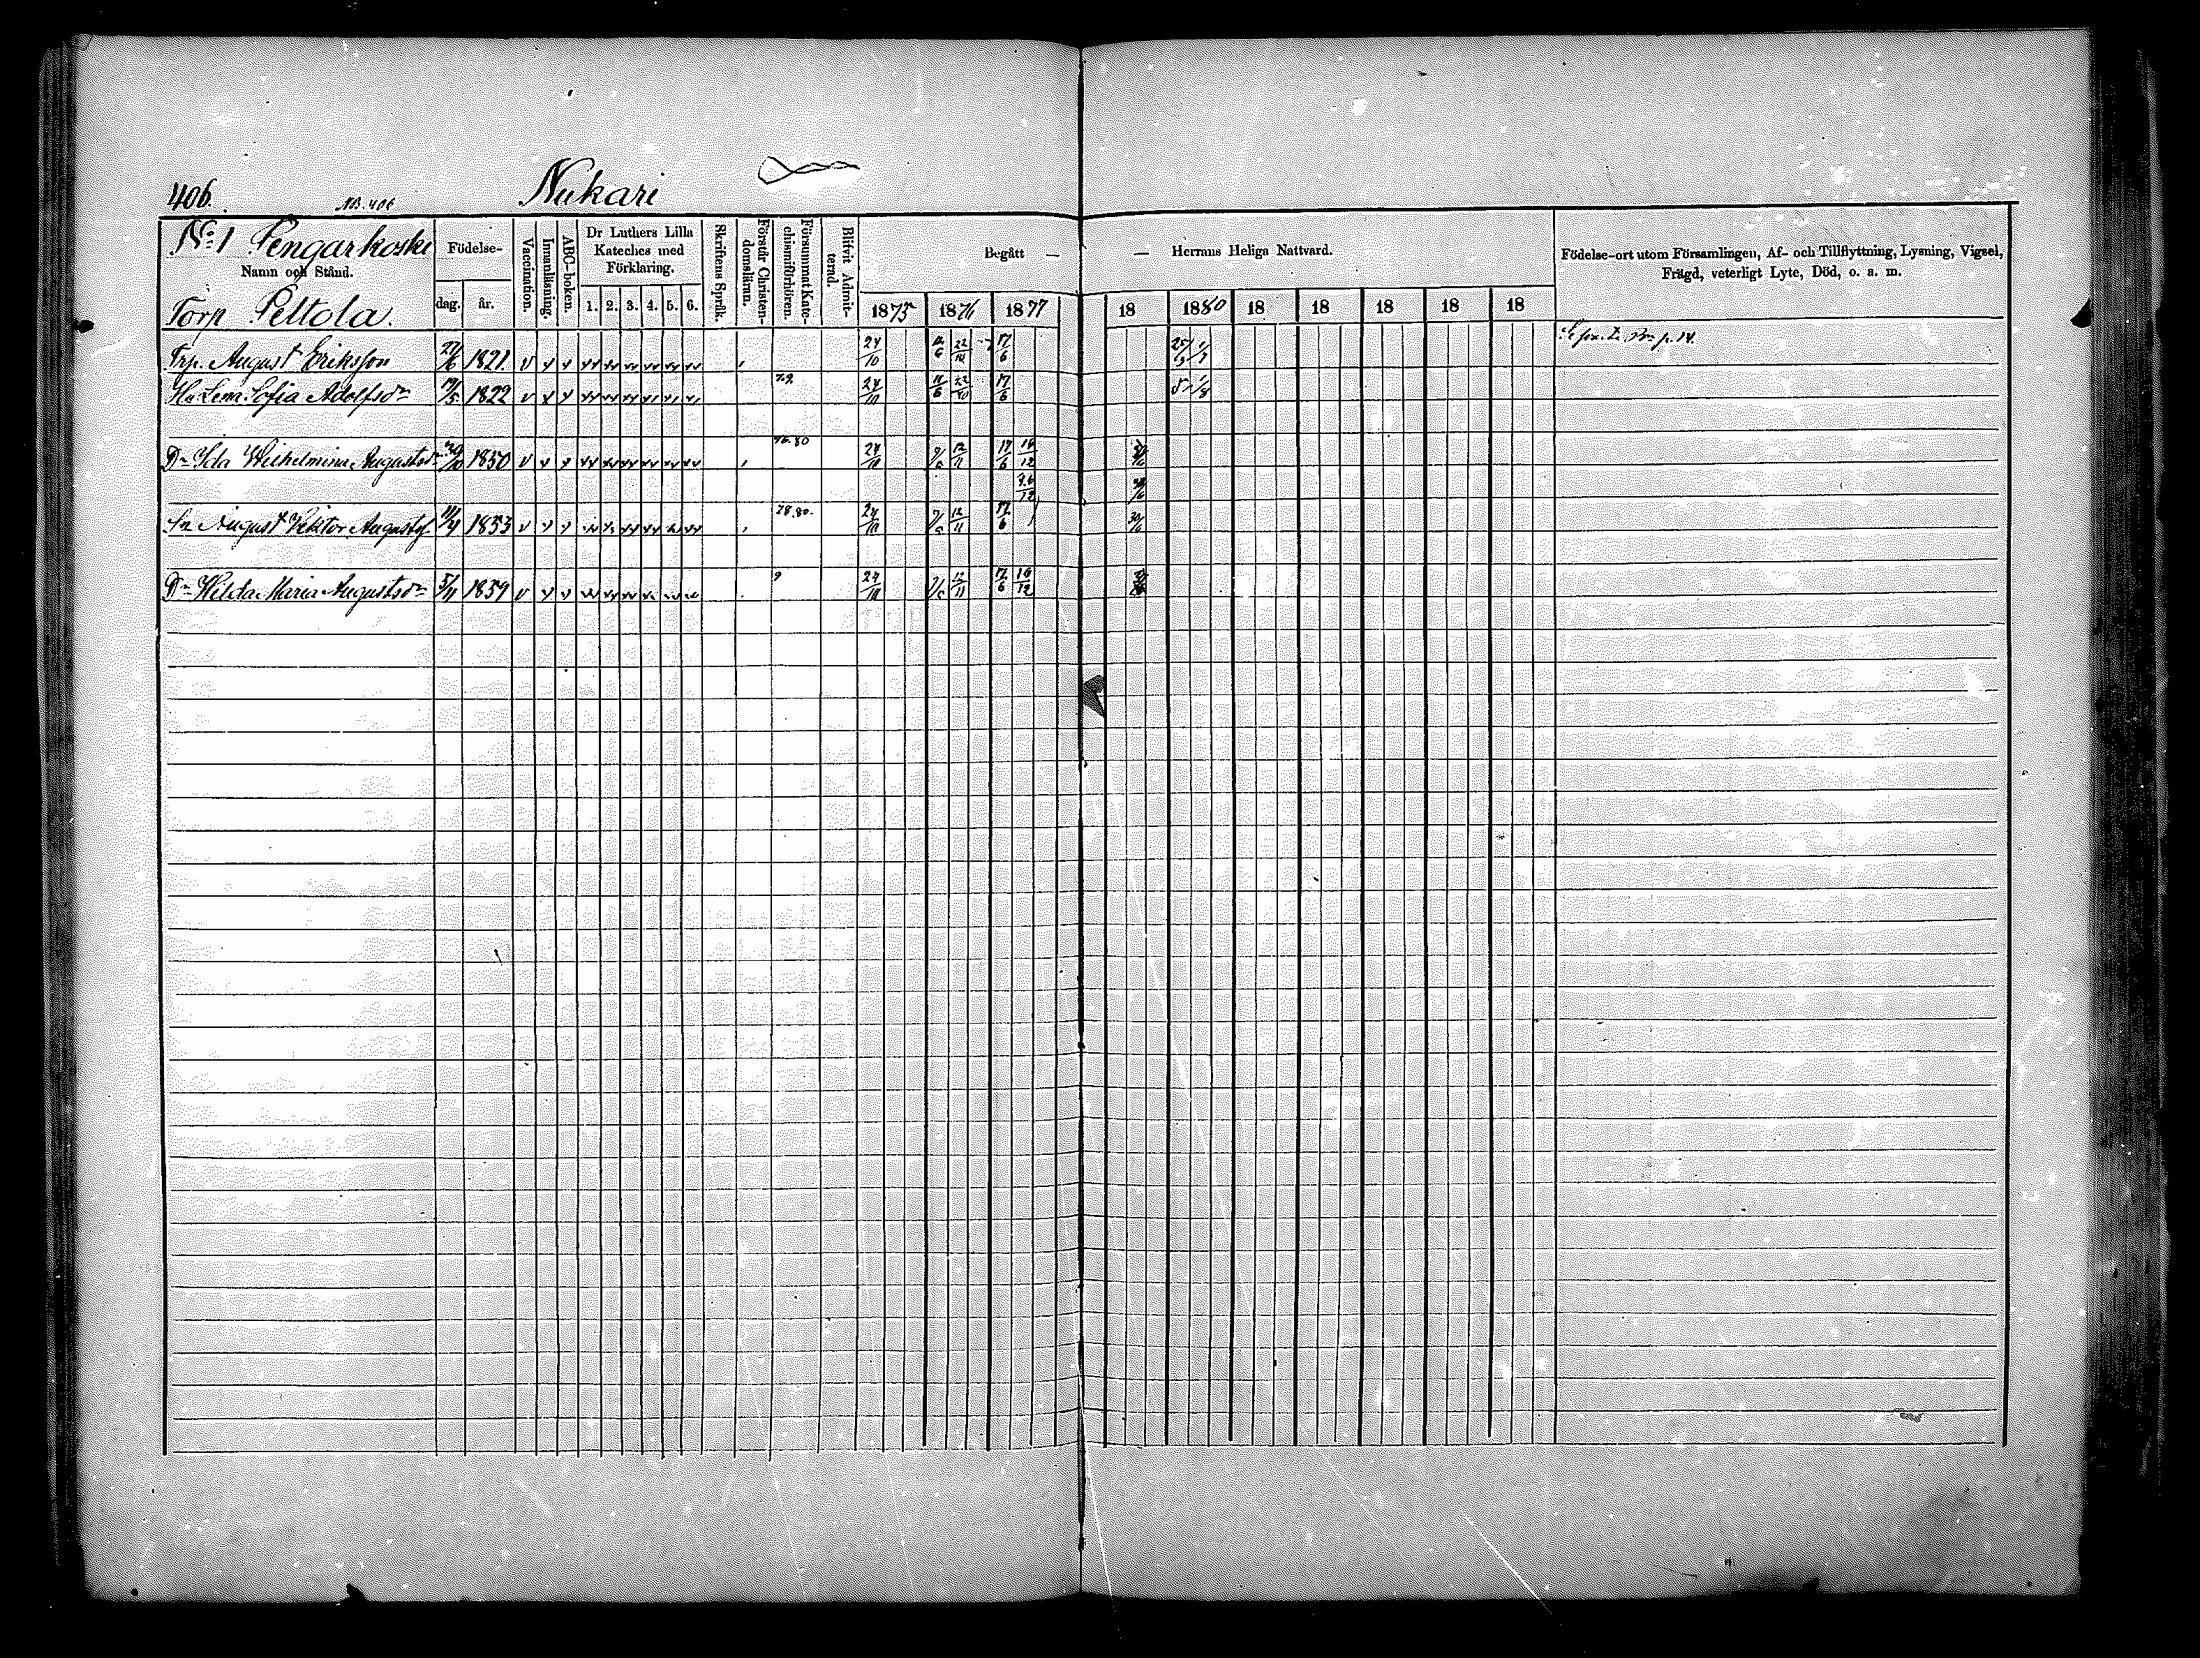 406. NB. 406 Nukari
No 1 Pengarkoski
Namn och Stånd.
Torp Peltola.
Födelse-
dag. år.
Vaccination.
Innanläsning.
ABC-boken.
Dr Luthers Lilla
Kateches med
Förklaring.
1. 2. 3. 4. 5. 6.
Skriftens Språk.
Förstår Christen-
domslänn.
Försummat Kate-
chismiförhören.
Blifvit Admit-
terad.
Begått —
— Herrans Heliga Nattvard.
1875 1876 1877 18 1880 18 18 18 18 18
Födelse-ort utom Församlingen, Af- och Tillflyttning, Lysning, Vigsel,
Frägd, veterligt Lyte, Död, o. a. m.
Trp. August Eriksson 27/6 1821. v 24/10 22/10 17/6
Hu Lena Sofia Adolfsdr 1822 v 79. 24/10 22/10 17/6
Dr Ida Wilhelmina Augustsdr 1850 v 76.80 24/10 12/11 17/6 16/12
Sn August Viktor Augustsf. 1853 v 78.80. 24/10 12/11 17/6
Dr Hilda Maria Augustsdr 5/11 1859 v 9 24/10 12/11 17/6 16/12